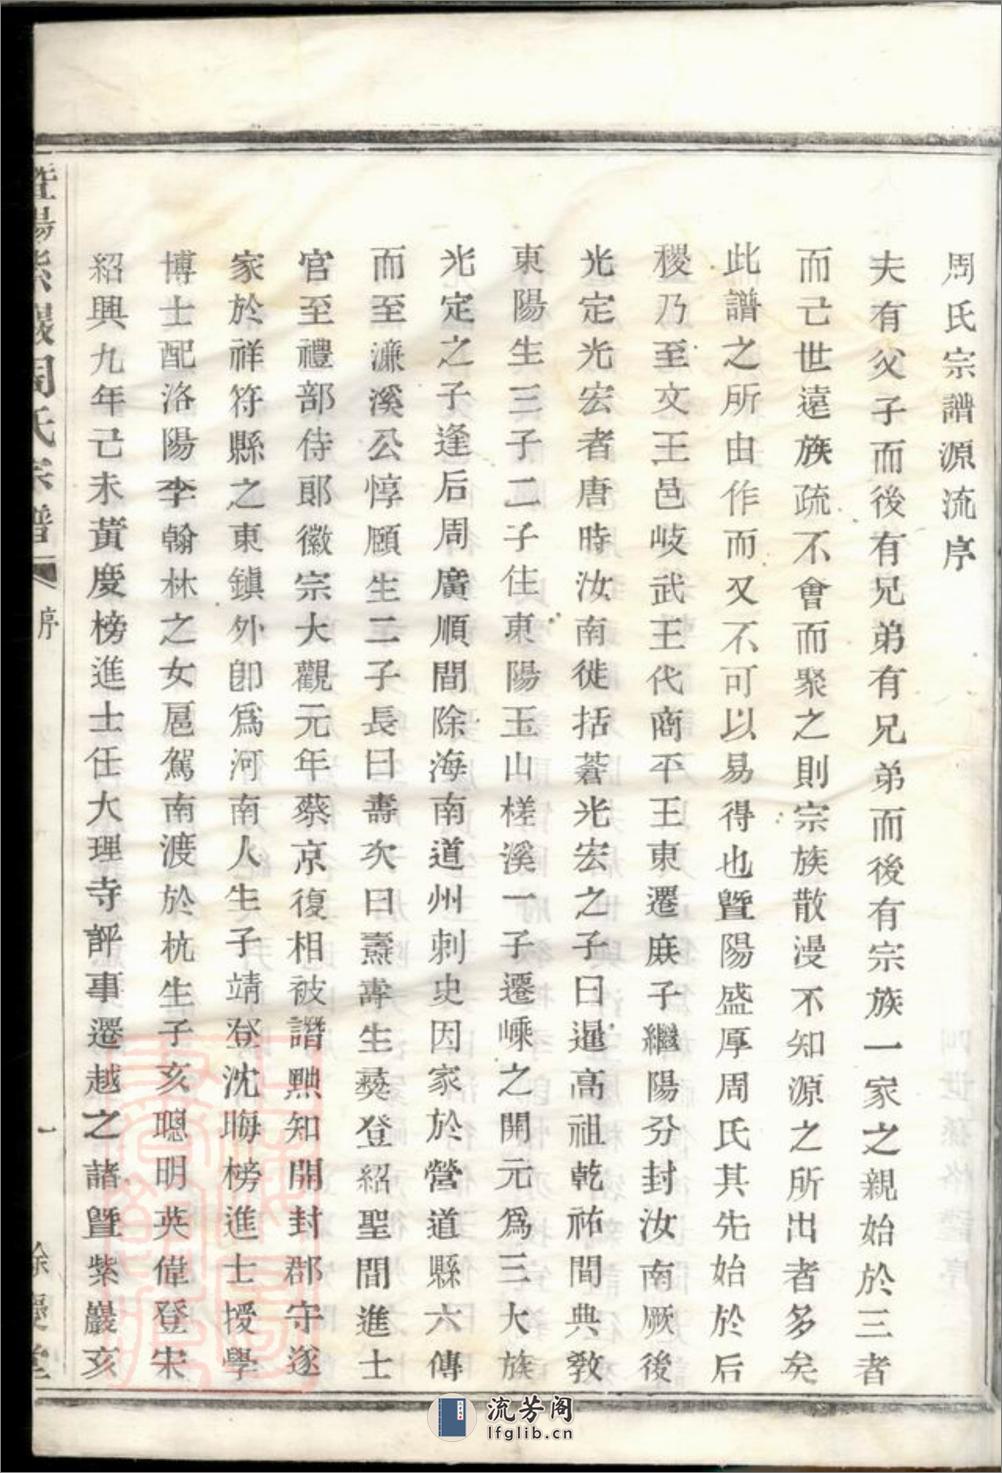 周氏宗譜源流序
夫有父子而後有兄弟有兄弟而後有宗族一家之親始於三者
而已世遠族疏不會而聚之則宗族散漫不知源之所出者多矣
此譜之所由作而又不可以易得也暨陽盛厚周氏其先始於后
稷乃至文王邑岐武王代商平王東遷庶子繼陽分封汝南厥後
光定光宏者唐時汝南徙括蒼光宏之子曰暹高祖乾祐間典教
東陽生三子二子住東陽玉山槎溪一子遷嵊之開元爲三大族
光定之子逢后周廣順間除海南道州刺史因家於營道縣六傳
而至濂溪公惇頤生二子長曰壽次曰燾壽生𦏁登紹聖間進士
官至禮部侍郎徽宗大觀元年蔡京復相被譖黜知開封郡守遂
家於祥符縣之東鎮外卽爲河南人生子靖登沈晦榜進士授學
博士配洛陽李翰林之女扈駕南渡於杭生子亥聰明英偉登宋
紹興九年己未黃慶榜進士任大理寺評事遷越之諸暨紫巖亥
暨陽紫巖周氏宗譜 序 一 餘慶堂
流芳阁
lfglib.cn